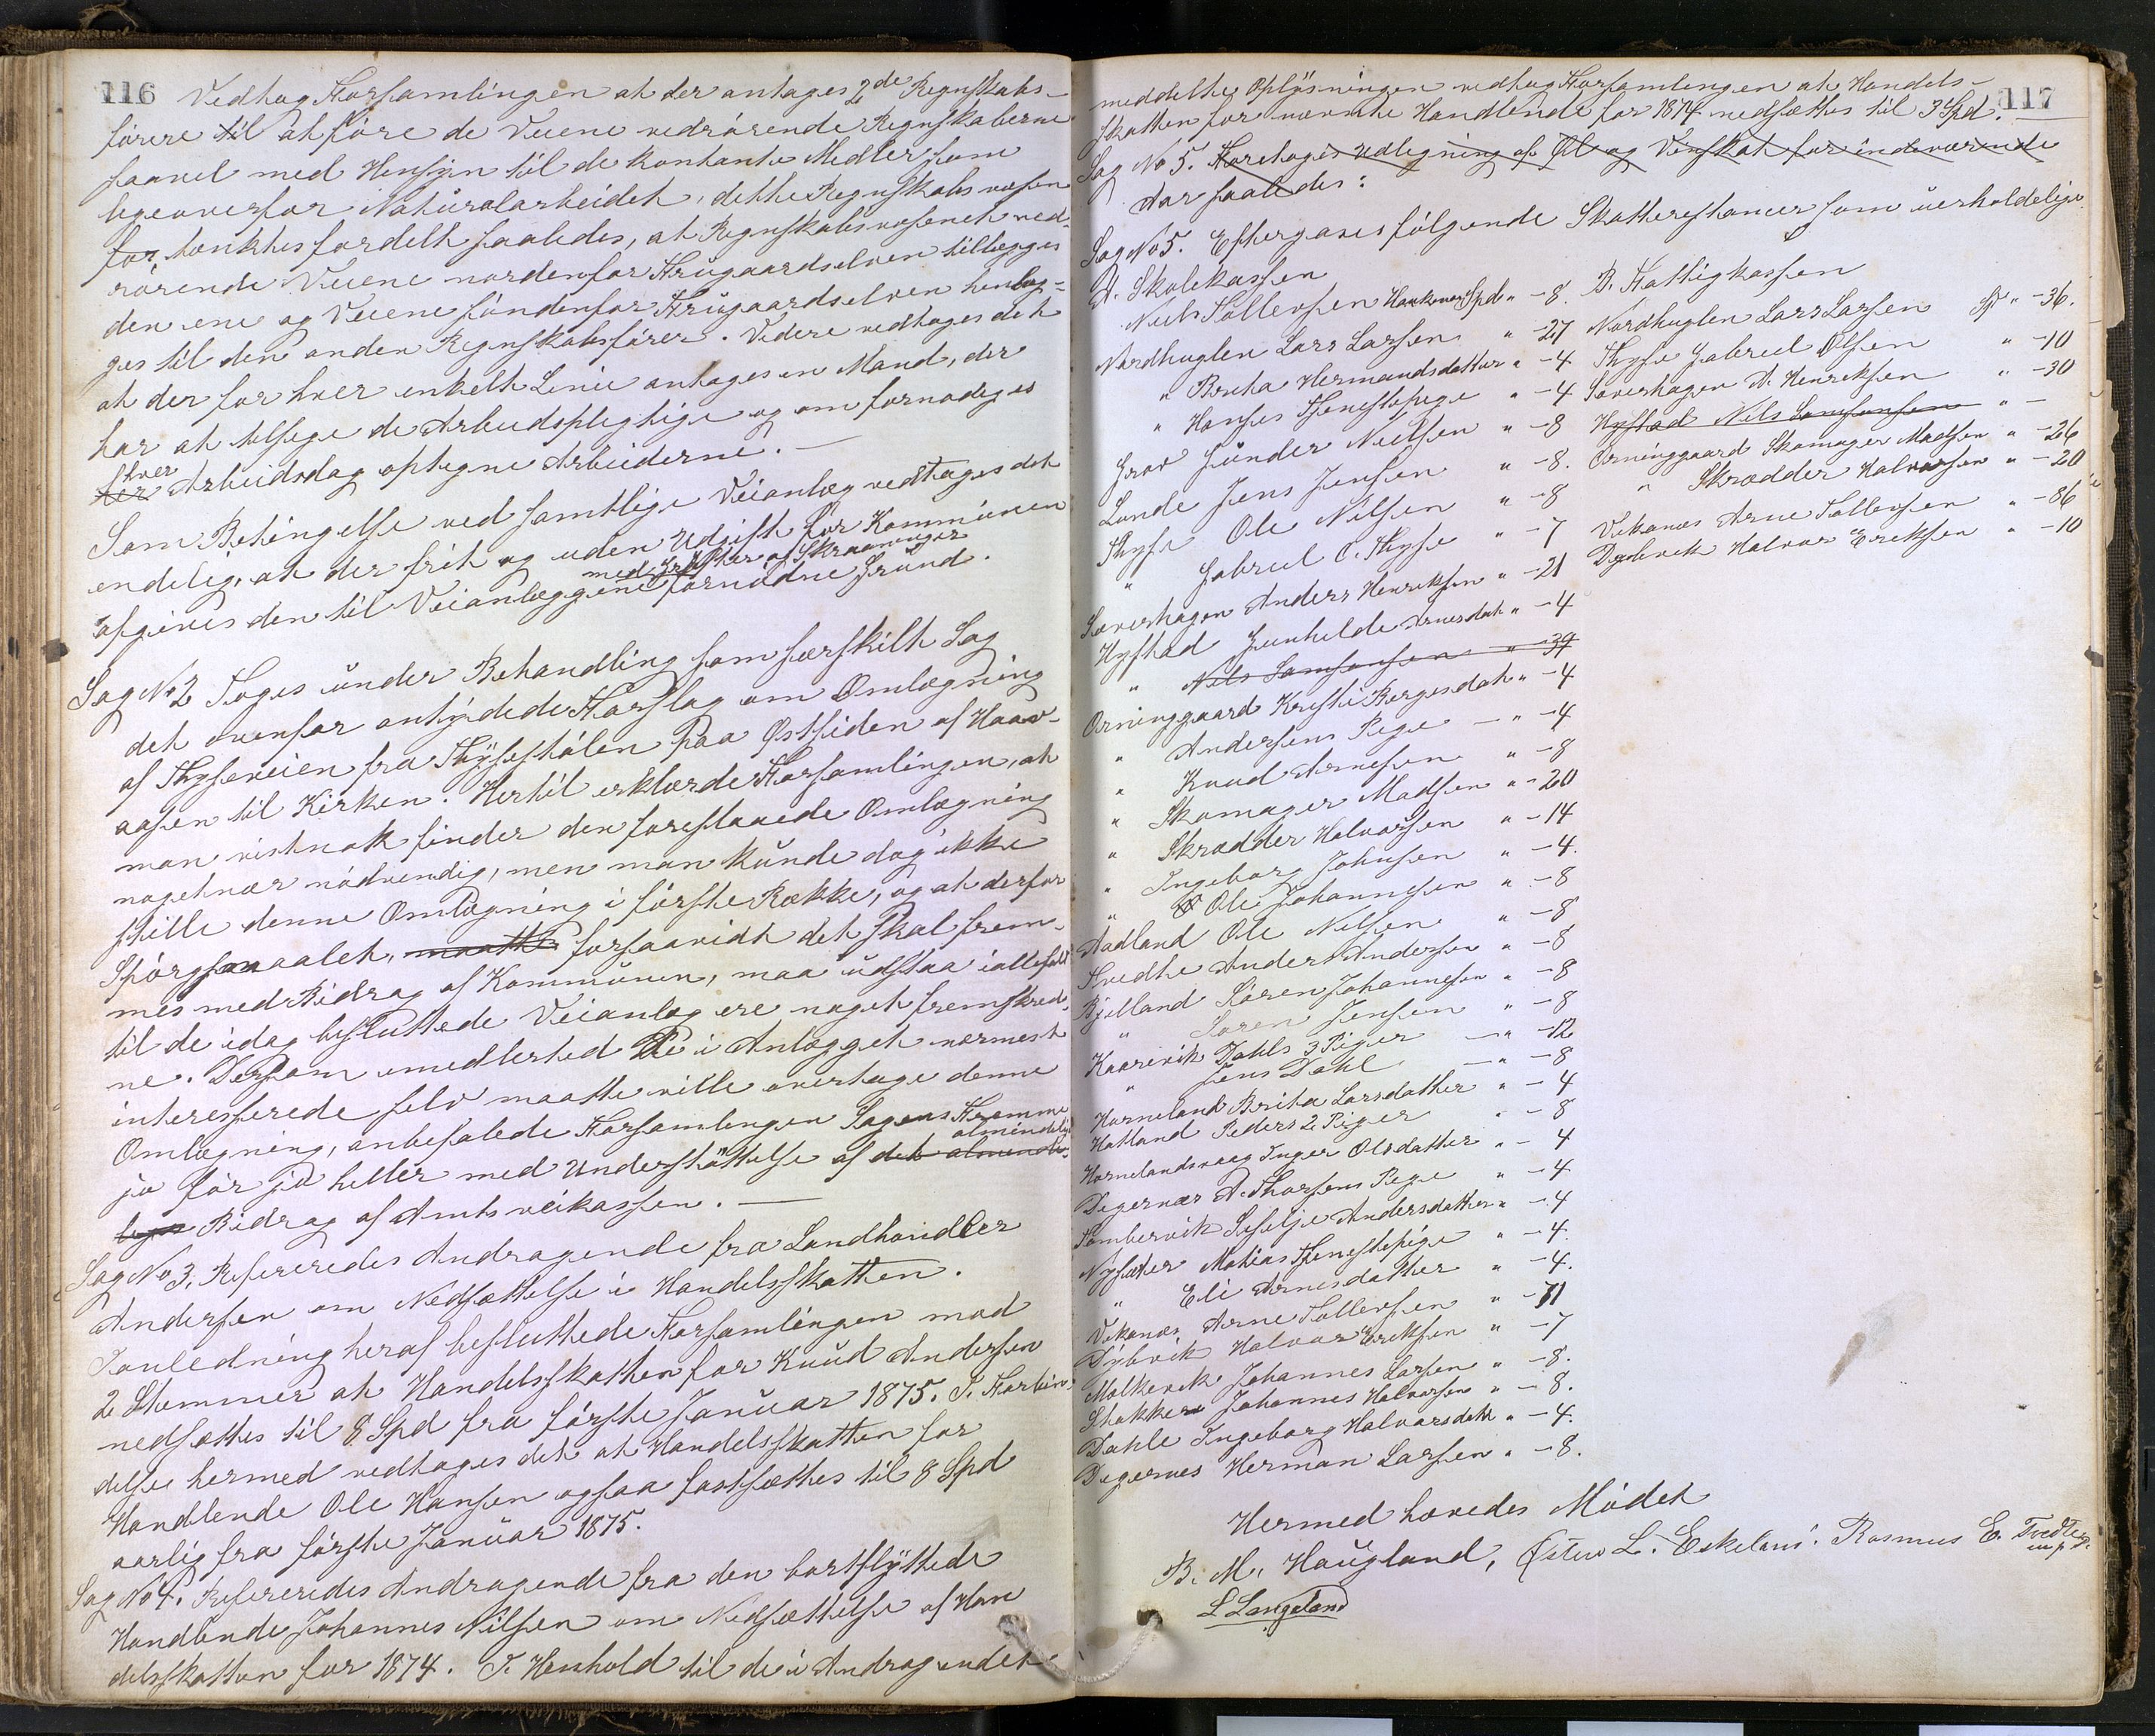 116
Vedtog Forsamlingen at der antages 2de Regnskabs-
förere til at före de Veiene vedrörende Regnskaberne
saavel med Hensyn til de kontante Midler som
ligeoverfor Naturalarbeidet, dette Regnskabsvæsen
for tænktes fordelt saaledes, at Regnskabsvæsenet ved-
rörende Veiene nordenfor Frugaardselven tillægges
den ene og Veiene söndenfor Frugaardselven henlæg-
ges til den anden Regnskabsförer. Videre vedtoges det
at der for hver enkelt Linie antages en Mand, der
har at tilsige de Arbeidspligtige og om fornödiges
hver
Arbeidsdag optegne Arbeiderne.
Som Betingelse ved samtlige Veianlæg vedtoges det
endelig, at der frit og uden Udgift for Kommunen
med Gröfter og Skraaninger
afgives den til Veianlæggene fornödne Grund.
Sag No 2 Toges under Behandling som særskilt Sag
det ovenfor antydede Forslag om Omlægning
af Thyseveien fra Thysestölen paa Östsiden af Haav-
aasen til Kirken. Hertil erklærde Forsamlingen, at
man vistnok finder den foreslaaede Omlægning
noget nær nödvendig, men man kunde dog ikke
stille denne Omlægning i förste Række, og at derfor
Spörgsmaalet, maatte forsaavidt det skal frem-
mes med Bidrag af Kommunen, maa udstaa ialtefald
til de idag besluttede Veianlæg ere noget fremskred-
ne. Dersom imedlertid De i Anlægget nærmest
interesserede selv maatte ville overtage denne
Omlægning, anbefalede Forsamlingen Sagens Fremme
almindeligt
jo för jo heller med Understöttelse af det almindelige
lige Bidrag af Amtsveikassen.
Sag No 3. Refereredes Andragende fra Landhandler
Andersen om Nedsættelse i Handelsskatten.
I anledning heraf besluttede Forsamlingen mod
2 Stemmer at Handelsskatten for Knud Andersen
nedsættes til 8 Spd fra förste Januar 1875. I Forbin-
delse hermed vedtoges det at Handelsskatten for
Handlende Ole Hansen ogsaa fastsættes til 8 Spd
aarlig fra förste Januar 1875.
Sag No 4. Refereredes Andragende fra den bortflyttede
Handlende Johannes Nilsen om Nedsættelse af Han
delsskatten for 1874. I Henhold til de i Andragendet
117
meddelte Oplysninger vedtog Forsamlingen at Handels-
skatten for nævnte Handlende for 1874 nedsættes til 3 Spd.
Sag No 5. Foretoges Udligning af Öl og Vinskat for indeværende
Aar saaledes:
Sag No 5. Eftergaves fölgende Skatterestancer som uerholdelige
A. Skolekassen
Niels Tollevsen Spd " - 8.
Nordhuglen Lars Larsen " - 27
" Brita Hermandsdatter " - 4
" Hanses Tjenestepige " - 4
Grov Gunder Nielsen " - 8
Lunde Jens Jensen " - 8.
Thyse Ole Nilsen " - 8
" Gabriel O. Thyse " - 7
Sæverhagen Anders Henriksen " - 21
Hystad Gunhilde Arnesdat " - 4
" Nils Samsonsen " - 39
Orninggaard Kristi Børgesdat " - 4
" Andersens Pige - " - 4
" Knud Arnesen " - 8
" Skomager Madsen " - 20
" Skrædder Halvorsen " - 14
" Ingeborg Johnsen " - 4.
" Ole Johannesen " - 8
Aadland Ole Nilsen " - 8
Tvedte Anders Andersen " - 8
Bjelland Sören Johannesen " - 8
" Sören Jensen " - 8
Kaarevik Dahls 3 Piger - " - 12
" Jens Dahl - " - 8
Horneland Brita Larsdatter " - 4
Hatland Peders 2 Piger " - 8
Hornelandsvaag Inger Olsdatter " - 4
Digernæs A. Thorsens Pige " - 4
Sombervik Sisilje Andersdatter " - 4
Nysæter Matias Tjenestepige " - 4.
" Eli Arnesdatter " - 4.
Vikanæs Arne Tollevsen " - 71
Dybvik Halvor Eriksen " - 7
Molkevik Johannes Larsen " - 8.
Stokken Johannes Halvorsen " - 8.
Dahle Ingeborg Halvorsdatt " - 4.
Digernes Herman Larsen " - 8.
B. Fattigkassen
Nordhuglen Lars Larsen Sp " - 36.
Thyse Gabriel Olsen " - 10
Sæverhagen A. Henriksen " - 30
Hystad Nils Samsonsen " -
Orninggaard Skomager Madsen " - 26
" Skrædder Halvorsen " - 20
Vikanæs Arne Tollevsen " - 86
Dybvik Halvor Eriksen " - 10
Hermed hævedes Mödet
B. M. Haugland, Östen L. Eskeland. Rasmus E. Tvedte
m. p. P.
L Langeland